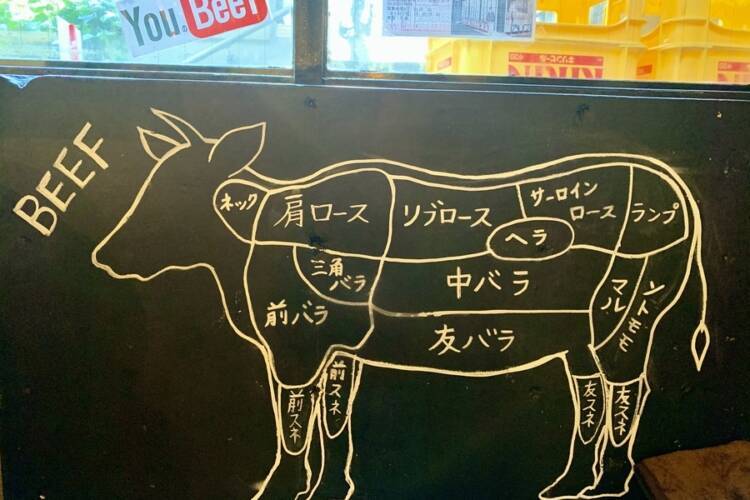 You Beef
BEEF
ネック
肩ロース
リブロース
サーロイン
ロース
ランプ
ヘラ
三角
バラ
中バラ
マル
ソトモモ
前バラ
友バラ
前スネ
前スネ
友スネ
友スネ